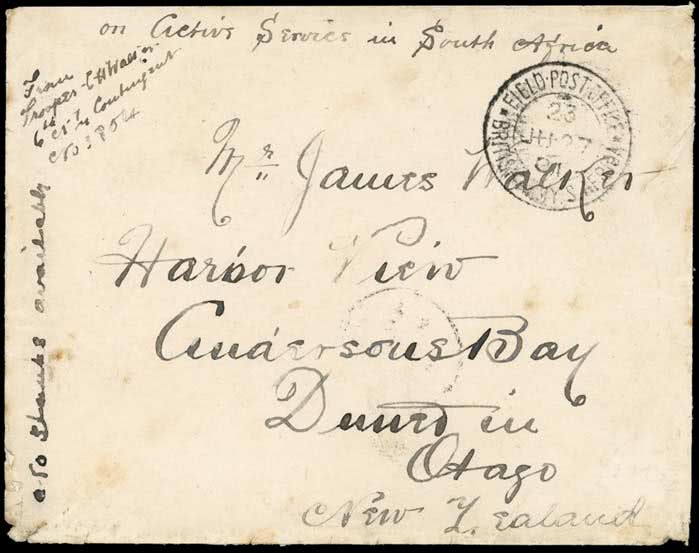 on Active Service in South Africa
From
Trooper C H Walker
6th N Z Contingent
No 3854
FIELD·POST·OFFICE
BRITISH ARMY S. AFRICA
23
JU 27
01
Mr James Walker
Harbor View
Andersons Bay
Dunedin
Otago
New Zealand
No Stamps available